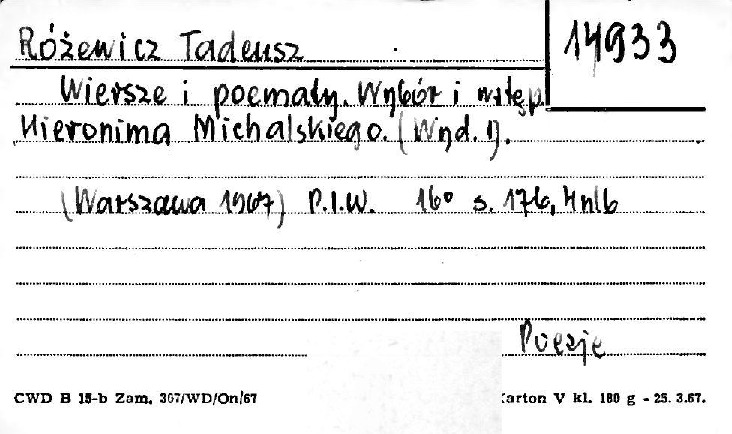 Różewicz Tadeusz
14933
Wiersze i poematy. Wybór i wstęp
Hieronima Michalskiego. (Wyd. 1).
(Warszawa 1967) P.I.W. 16° s. 176, 4 nlb
Poezje
CWD B 15-b Zam. 367/WD/On/67
Karton V kl. 180 g - 25. 3.67.